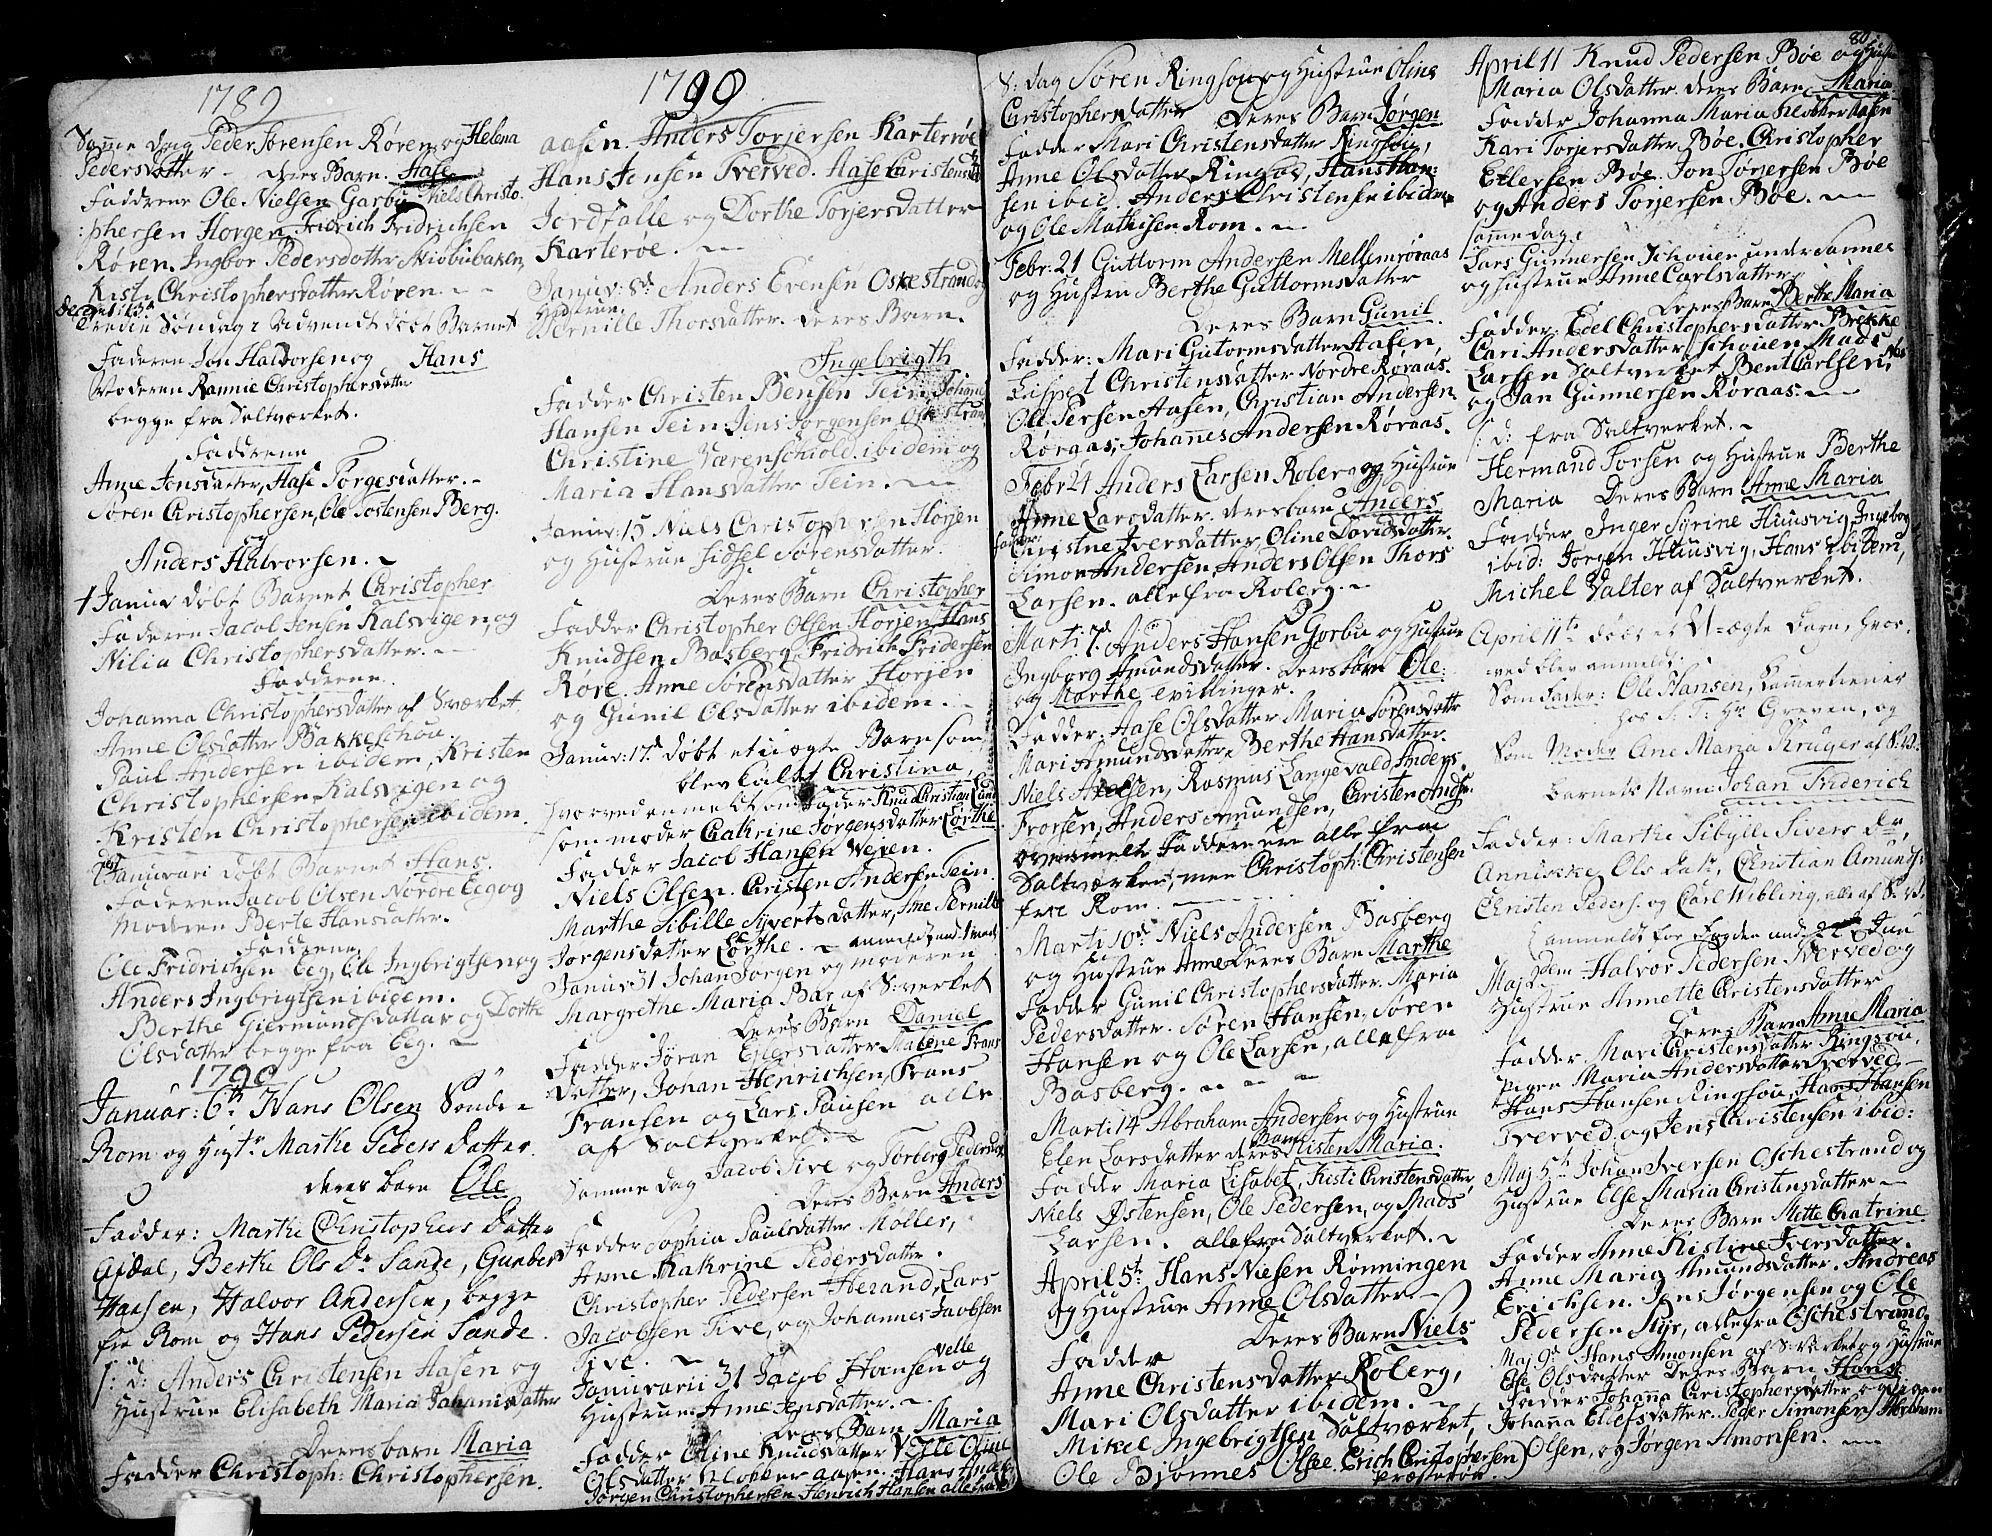 1789
Samme dag Peder Sørensen Røren og Helena
Pedersdatter - deres Barn. Aase
Fadderne Ole Nielsen Garbu, Niels Christo-
:phersen Horgen, Fridrich Fridrichsen
Røren. Ingbor Pedersdatter
Kisti Christophersdatter Røren. -
Decbr: 13de
Tredie Søndag i Advendt døbt Barnet
Faderen Jon Haldorsen og Hans
Moderen Rannie Christophersdatter
begge fra Saltværket.
Fadderne
Anne Jonsdatter, Aase Torgesdatter. -
Søren Christophersen, Ole Tostensen Berg.
og
Anders Halvorsen. -
1 Januar døbt Barnet Christopher
Faderen Jacob Jensen Kalsvigen, og
Nilia Christophersdatter. -
Fadderne.
Johanna Christophersdatter af Sværket
Anne Olsdatter Bakkeschou
Paul Andersen ibidem, Kristen
Christophersen Kalsvigen og
Kristen Christophersen ibidem.
Januari døbt Barnet Hans.
Faderen Jacob Olsen Nordre Eeg og
Moderen Berte Hansdatter.
Fadderne
Ole Fridrichsen Eeg, Ole Ingbrigtsen og
Anders Ingbrigtsen ibidem.
Berthe Giermundsdatter og Dorthe
Olsdatter begge fra Eeg. -
1790
Januar: 6te Hans Olsen Sønde-
Rom og Hustr Marthe Peders Datter
deres barn Ole
Fadder: Marthe Christophers Datter
Berthe Ols Dr Sande, Gunber
Hansen, Halvor Andersen, begge
fra Rom og Hans Pedersen Sande.
S: D: Anders Christensen Aasen og
Hustrue Elisabeth Maria Johanisdatter
Deres barn Maria
Fadder Christoph: Christophersen.
1790
aasen. Anders Torjersen Karterøe
Hans Jensen Tverved. Aase Christensdatter
Jordfalle og Dorthe Torjersdatter
Karterøe. -
Januv: 8de Anders Evensen Oskestrand og
Hustrue
Pernille Thorsdatter. deres Barn.
Ingebrigth
Fadder Christen Bensen Tein, Johans
Hansen Tein, Jens Jørgensen Oskestrand
Christine Værenschiold ibidem og
Maria Hansdatter Tein. -
Januv: 15 Niels Christophersen Horjen
og Hustrue Sidsel Sørensdatter.
Deres Barn Christopher
Fadder Christopher Olsen Horjen, Hans
Knudsen Basberg, Fridrich Fridersen
Røre. Anne Sørensdatter Horjen
og Gunil Olsdatter ibidem. -
Januv: 17de døbt et uægte Barn som
blev kaldet Christina
Knud Christian Lund
som moder Cathrine Jørgensdatter Lørthe
Fadder Jacob Hansen Vejen.
Niels Olsen. Christen Andersen Tein.
Marthe Sibille Syvertsdatter, Ane Pernille
Jørgensdatter Lørthe. -
Januv: 31 Johan Jørgen og moderen
Margrethe Maria Bar af S: verket
Deres Barn Daniel
Fadder Jøran Ejlersdatter Malene Frans
Datter, Johan Henrichsen, Frans
Fransen og Lars Pausen alle
af Saltverket. -
Samme dag Jacob Tive og Torberg Pedersdatter
Deres Barn Anders
Fadder Sophia Paulsdatter Møller,
Anne Kathrine Pedersdatter.
Christopher Pedersen Herand, Lars
Jacobsen Tive, og Johannes Jacobsen
Tive. -
Januvarii 31 Jacob Hansen Velle og
Hustrue Anne Jensdatter. -
Deres Barn Maria
Fadder Oline Knudsdatter Velle Oline
Olsdatter Klopper aasen. Hans
Jørgen Christophersen Henrich Hansen alle fra
S: dag Søren Ringsou og Hustrue Oline
Christophersdatter Deres Barn Jørgen
Fadder Mari Christensdatter Ringsou,
Anne Olsdatter Ringsou, Hans Han:
sen ibid. Anders Christensen ibidem
og Ole Mathisen Rom. -
Febr: 21 Guttorm Andersen Mellemrøraas
og Hustru Berthe Guttormsdatter
Deres Barn Gunil
Fadder: Mari Gutormsdatter Aasen,
Lispet Christensdatter Nordre Røraas.
Ole Persen Aasen, Christian Andersen
Røraas, Johannes Andersen Røraas.
Febr 21 Anders Larsen Roberg og Hustrue
Anne Larsdatter. deres barn Anders
Fadder:
Christne Iversdatter, Oline Davidsdatter
Simon Andersen, Anders Olsen Thors
Larsen. alle fra Roberg. -
Marti 7de Anders Hansen Gorbu og Hustrue
Ingborg Amundsdatter. deres børn Ole:
og Marthe tvillinger.
Fadder: Aase Olsdatter Maria Sørensdatter
Mari Amundsdatter, Berthe Hansdatter.
Niels Axelsen, Rasmus Langevald Anders.
Frorsen, Anders Amundsen, Christen Andsen
overmelte Faddere ere alle fra
Saltværket, men Christoph: Christensen
fra Rom.
Marti 10de Niels Andersen Basberg
og Hustrue Anne Deres Barn Marthe
Fadder Gunil Christophersdatter. Maria
Pedersdatter. Søren Hansen, Søren
Hansen og Ole Larsen, alle fra
Basberg. - - -
Marti 14 Abraham Andersen og Hustrue
Elen Larsdatter deres Barn Kisten Maria.
Fadder Maria Lisabet, Kisti Christensdatter,
Niels Østensen, Ole Pedersen, og Mads
Larsen. alle fra Saltverket. -
April 5te Hans Nielsen Rønningen
og Hustrue Anne Olsdatter -
Deres Barn Niels
Fadder
Anne Christensdatter Roberg,
Mari Olsdatter ibidem. -
Mikel Ingebrigtsen Saltværket,
Ole Bjønnes Olsee. Erich Christophersen
80
April 11 Knud Pedersen Bøe og Hustru
Maria Olsdatter. deres Barn Maria
Fadder Johanna Maria Klopper Aasen
Kari Torjersdatter Bøe. Christopher
Ellersen Bøe. Jon Torjersen Bøe
og Anders Torjersen Bøe. -
samme dag.
Lars Gunnersen Schouen under Sannes
og Hustrue Anne Carlsdatter
Deres Barn Berthe Maria
Fadder: Edel Christophersdatter Brekke
Cari Andersdatter Schouen Mads
Larsen Saltverket, Bent Carlsen
og Jan Gunnersen Røraas. -
S: d: fra Saltverket. -
Hermand Torsen og Hustrue Berthe
Maria Deres Barn Anne Maria
Fadder Inger Syrine Huusvig, Ingebor
ibid: Jørgen Huusvig, Hans ibidem,
Michel Valter af Saltverket.
April 11te døbt et U-ægte Barn, hvor-
ved blev anmeldt
Som Fader: Ole Hansen, Kammertiener
hos S. T. Hr Greven, og
Som Moder Ane Maria Krüger af S: W:
barnets Navn Johan Friderich
Fadder: Marthe Sibylle Sivers Dr,
Annikke Ols Datr, Christian Amunds:
Christen Peders: og Carl Wibling, alle af S. V.
(anmeldt for Fogden
Maj 2den Halvor Pedersen Tverved og
Hustrue Annette Christensdatter
Deres Barn Anne Maria
Fadder Mari Christensdatter Ringsou,
Pigen Maria Andersdatter Tverved -
Hans Hansen Ringsou, Hans Hansen
Tverved og Jens Christensen ibid:
Maj 5te Johan Iversen Oschestrand og
Hustrue Else Maria Christensdatter -
Deres Barn Mette Catrine
Fadder Anne Kistine Iversdatter.
Anne Maria Amundsdatter. Andreas
Erichsen. Jens Jørgensen og Ole
Pedersen Kyr, alle fra Oschestrand.
Maj 9de Hans Amonsen af S: Verket og Hustrue
Else Olsdatter Deres Barn Hans
Fadder Johanna Christophersdatter og Pigen
Johanna Elefsdatter. Peder Simonsen, Abraham
Olsen, og Jørgen Amonsen. -